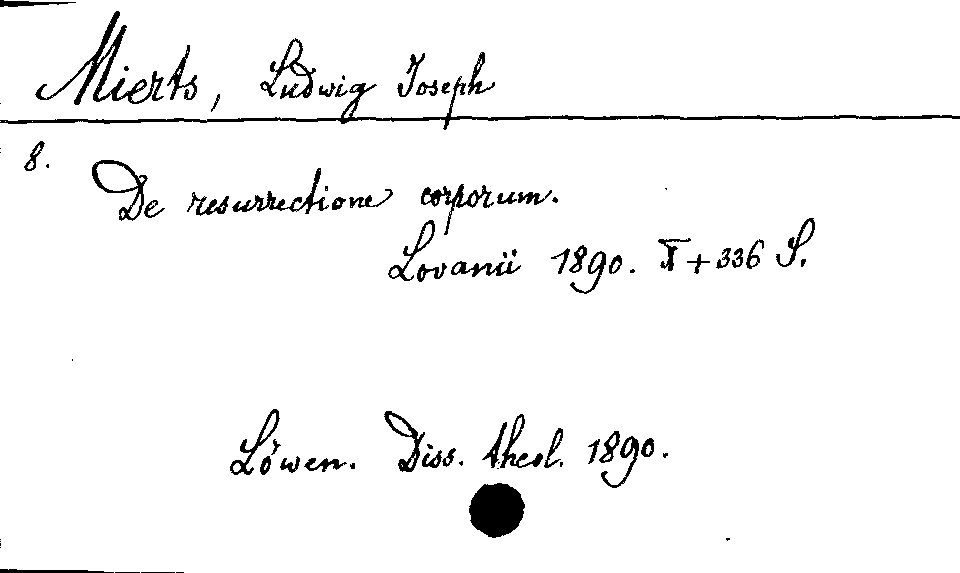 Mierts, Ludwig Joseph
8.
De resurrectione corporum.
Lovanii 1890. X + 336 S.
Löwen. Diss. theol. 1890.